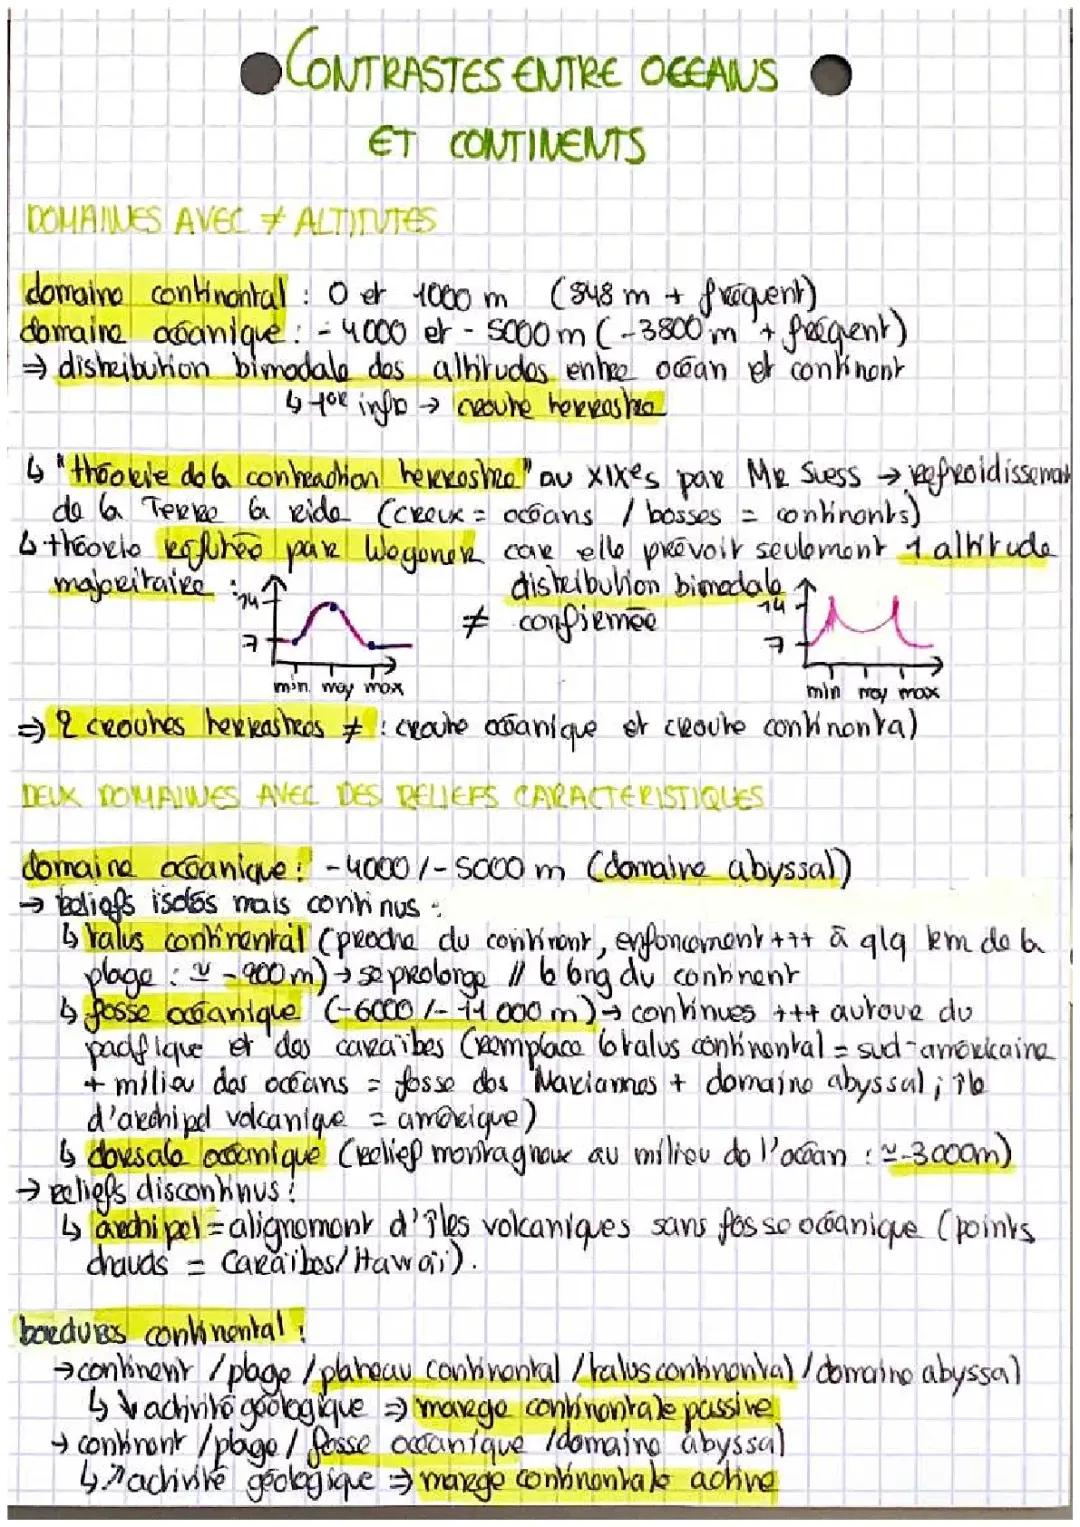 CONTRASTES ENTRE OCEANS
ET CONTINENTS
DOMAINES AVEC ≠ ALTITUTES
domaine continental : 0 et 1000 m (848 m + fréquent)
domaine océanique : - 4000 et - 5000 m (-3800 m + fréquent)
⇒ distribution bimodale des altitudes entre océan et continent
↳ 1ère info → croute terrestre
↳ "théorie de la contraction terrestre" au XIXes par Mr Suess → refroidissement
de la Terre la ride (creux = océans / bosses = continents)
↳ théorie réfutée par Wegener car elle prévoit seulement 1 altitude
majoritaire :
distribution bimodale
≠ confirmée
14
7
min moy max
14
7
min moy max
⇒ 2 croutes terrestres ≠ : croute océanique et croute continental
DEUX DOMAINES AVEC DES RELIEFS CARACTERISTIQUES
domaine océanique : -4000 / -5000 m (domaine abyssal)
→ reliefs isolés mais continus :
↳ talus continental (proche du continent, enfoncement +++ à qlq km de la
plage : ≃ -900 m) → se prolonge // le long du continent
↳ fosse océanique (-6000 / -11 000 m) → continues +++ autour du
pacifique et des caraïbes (remplace le talus continental = sud-américaine
+ milieu des océans = fosse des Mariannes + domaine abyssal ; île
d'archipel volcanique = amérique)
↳ dorsale océanique (relief montagneux au milieu de l'océan : ≃ -3000m)
→ reliefs discontinus :
↳ archipel = alignement d'îles volcaniques sans fosse océanique (points
chauds = Caraïbes/Hawaïi).
bordures continental :
→ continent / plage / plateau continental / talus continental / domaine abyssal
↳ ↘ activité géologique ⇒ marge continentale passive
→ continent / plage / fosse océanique / domaine abyssal
↳ ↗ activité géologique ⇒ marge continentale active